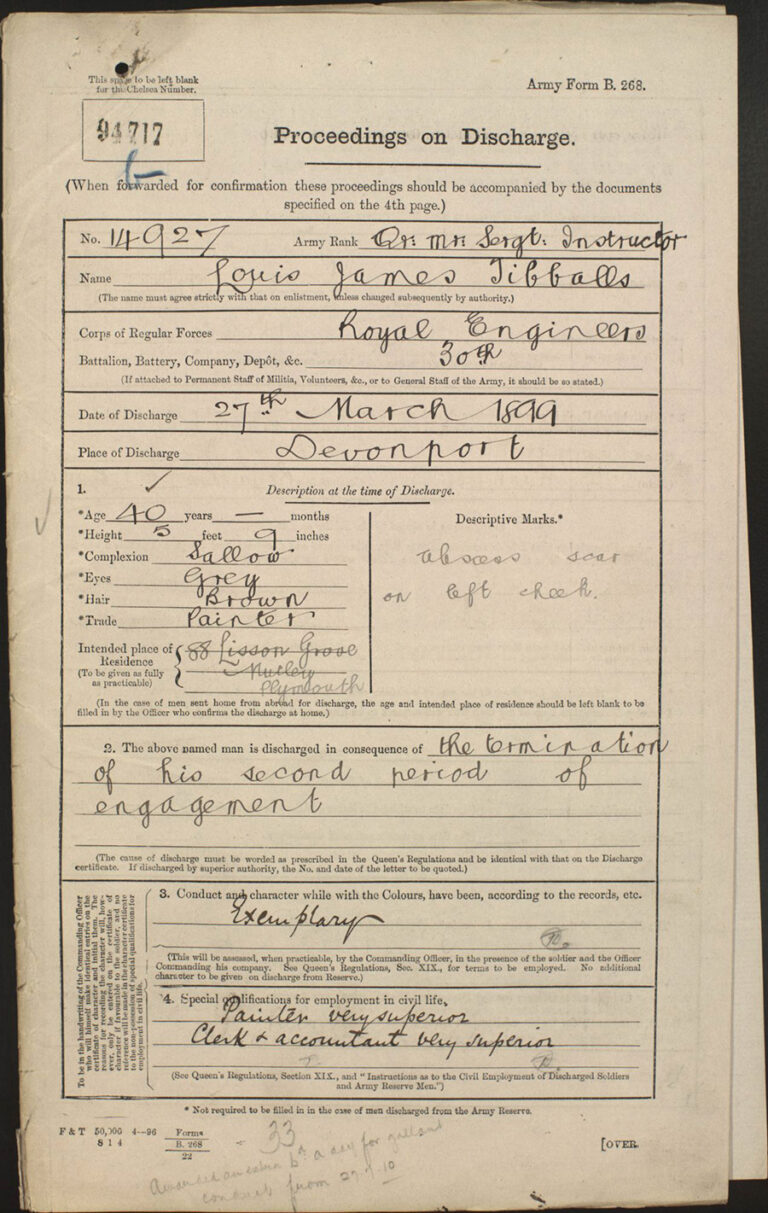 This space to be left blank
for the Chelsea Number.
Army Form B. 268.
94717
Proceedings on Discharge.
(When forwarded for confirmation these proceedings should be accompanied by the documents
specified on the 4th page.)
No. 14927 Army Rank Qr: Mr: Sergt: Instructor
Name Louis James Tibballs
(The name must agree strictly with that on enlistment, unless changed subsequently by authority.)
Corps of Regular Forces Royal Engineers
Battalion, Battery, Company, Depôt, &c. 30th
(If attached to Permanent Staff of Militia, Volunteers, &c., or to General Staff of the Army, it should be so stated.)
Date of Discharge 27th March 1899
Place of Discharge Devonport
1. Description at the time of Discharge.
*Age 40 years — months
*Height 5 feet 9 inches
*Complexion Sallow
*Eyes Grey
*Hair Brown
*Trade Painter
Intended place of Residence (To be given as fully as practicable)
88 Lisson Grove
Mutley
Plymouth
Descriptive Marks.*
abscess scar
on left cheek.
(In the case of men sent home from abroad for discharge, the age and intended place of residence should be left blank to be
filled in by the Officer who confirms the discharge at home.)
2. The above named man is discharged in consequence of the termination
of his second period of
engagement
(The cause of discharge must be worded as prescribed in the Queen's Regulations and be identical with that on the Discharge
certificate. If discharged by superior authority, the No. and date of the letter to be quoted.)
To be in the handwriting of the Commanding Officer
who will himself make identical entries on the
certificate of character and initial them. The
reasons for recording the character will, how-
ever, only be entered on the certificate of
character if favourable to the soldier, and no
reference will be made in the character certificate
to the non-possession of special qualifications for
employment in civil life.
3. Conduct and character while with the Colours, have been, according to the records, etc.
Exemplary
(This will be assessed, when practicable, by the Commanding Officer, in the presence of the soldier and the Officer
Commanding his company. See Queen's Regulations, Sec. XIX., for terms to be employed. No additional
character to be given on discharge from Reserve.)
4. Special qualifications for employment in civil life,
Painter very superior
Clerk & accountant very superior
(See Queen's Regulations, Section XIX., and "Instructions as to the Civil Employment of Discharged Soldiers
and Army Reserve Men.")
* Not required to be filled in in the case of men discharged from the Army Reserve.
F & T 50,000 4—96
S 14
Forms
B. 268
22
33
[OVER.
Awarded an extra 6d a day for gallant
conduct from 27 10